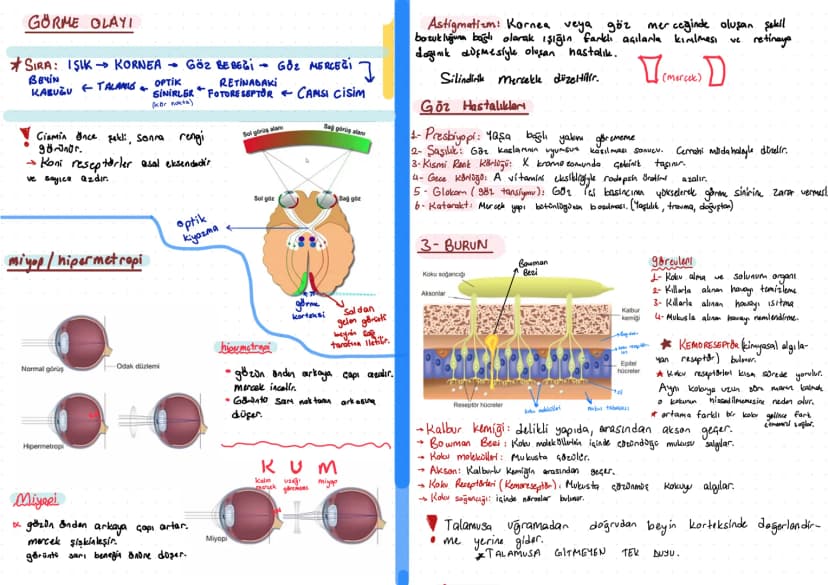 GÖRME OLAYI
* SIRA: IŞIK → KORNEA → GÖZ BEBEĞİ → GÖZ MERCEĞİ
BEYİN KABUĞU ← TALAMUS ← OPTİK SİNİRLER ← RETİNADAKİ FOTORESEPTÖR ← CAMSI CİSİM
(kör nokta)
! Cismin önce şekli, sonra rengi
görünür.
→ Koni reseptörler asal eksendedir
ve sayıca azdır.
Sol görüş alanı
Sağ görüş alanı
Sol göz
Sağ göz
optik
kiyazma
görme
korteksi
Soldan
gelen görüntü
beynin sağ
tarafına iletilir.
miyop / hipermetropi
Normal görüş
Odak düzlemi
Hipermetropi
hipermetropi
• gözün önden arkaya çapı azalır.
mercek incelir.
• Görüntü sarı noktanın arkasına
düşer.
K U M
Kalın
mercek
uzağı
görememe
miyop
Miyopi
gözün önden arkaya çapı artar.
mercek şişkinleşir.
görüntü sarı beneğin önüne düşer.
Miyopi
Astigmatizm: Kornea veya göz merceğinde oluşan şekil
bozukluğuna bağlı olarak ışığın farklı açılarla kırılması ve retinaya
dağınık düşmesiyle oluşan hastalık.
Silindirik mercekle düzeltilir.
(mercek)
Göz Hastalıkları
1- Presbiyopi: Yaşa bağlı yakını görememe
2- Şaşılık: Göz kaslarının uyumsuz kasılması sonucu. Cerrahi müdahaleyle düzelir.
3- Kısmi Renk Körlüğü: X kromozomunda çekinik taşınır.
4- Gece Körlüğü: A vitamini eksikliğiyle rodopsin üretimi azalır.
5- Glokom (göz tansiyonu): Göz içi basıncının yükselerek görme sinirine zarar vermesi
6- Katarakt: Mercek yapı bütünlüğünün bozulması. (Yaşlılık, travma, doğuştan)
3- BURUN
Bowman
Bezi
Koku soğancığı
Aksonlar
Kalbur
kemiği
Epitel
hücreler
Reseptör hücreler
koku molekülleri
Mukus tabakası
görevleri
1- Koku alma ve solunum organı
2- Kıllarla alınan havayı temizleme
3- Kıllarla alınan havayı ısıtma
4- Mukusla alınan havayı nemlendirme.
★ KEMORESEPTÖR (kimyasal algıla-
yan reseptör) bulunur.
★ Koku reseptörleri kısa sürede yorulur.
Aynı kokuya uzun süre maruz kalmak
o kokunun hissedilmemesine neden olur.
★ ortama farklı bir koku gelince fark
etmemizi sağlar.
→ Kalbur kemiği: delikli yapıda, arasından akson geçer.
→ Bowman Bezi: Koku moleküllerinin içinde çözündüğü mukusu salgılar.
→ Koku molekülleri: Mukusta çözülür.
→ Akson: Kalburlu kemiğin arasından geçer.
→ Koku Reseptörleri (Kemoreseptör): Mukusta çözünmüş kokuyu algılar.
→ Koku soğancığı: içinde nöronlar bulunur.
! Talamusa uğramadan doğrudan beyin korteksinde değerlendir-
me yerine gider.
★ TALAMUSA GİTMEYEN TEK DUYU.